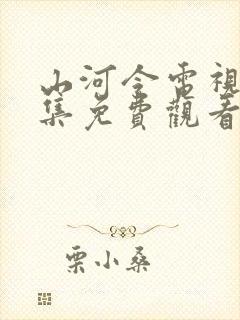 山河令電視
集免費觀看
栗小桑